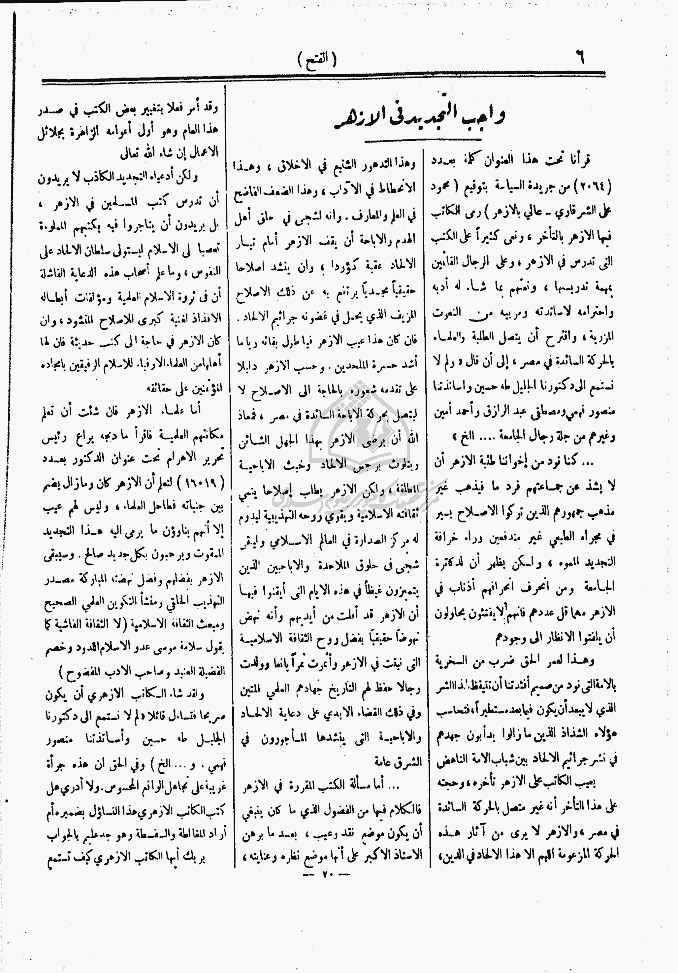 ٦
( الفتح )
واجب التجديد في الازهر
قرأنا تحت هذا العنوان كلمة بعدد
(٢٠٦٤) من جريدة السياسة بتوقيع ( محمود
على الشرقاوي - عالي بالازهر ) رمى الكاتب
فيها الازهر بالتأخر ، ونعى كثيراً على الكتب
التى تدرس في الازهر ، وعلى الرجال القائمين
بمهمة تدريسها ، ونعتهم بما شاء له أدبه
واحترامه لاساتذته ومربيه من النعوت
المزرية ، واقترح أن يتصل الطلبة والعلماء
بالحركة السائدة في مصر ، إلى أن قال « ولم لا
نستمع الى دكتورنا الجليل طه حسين واساتذتنا
منصور فهمي ومصطفى عبد الرازق وأحمد أمين
وغيرهم من جلة رجال الجامعة .... الخ »
... كنا نود من إخواننا طلبة الازهر أن
لا يشذ عن جماعتهم فرد ما فيذهب غير
مذهب جمهورهم الذين تركوا الاصلاح يسير
في مجراه الطبعي غير مندفعين وراء خرافة
التجديد المموه ، ولكن يظهر أن لدكاترة
الجامعة ومن انحرف انحرافهم أذناب في
الازهر مهما قل عددهم فانهم لا يفتئون يحاولون
أن يلفتوا الانظار الى وجودهم
وهذا لعمر الحق ضرب من السخرية
بالامة التى نود من صميم أفئدتنا أن تتيقظ لهذا الشر
الذي لا يبعد أن يكون فيما بعد مستطيراً، فتحاسب
هؤلاء الشذاذ الذين ما زالوا يدأبون جهدهم
في نشر جرائيم الالحاد بين شباب الامة الناهض
يعيب الكاتب على الازهر تأخره ، وحجته
على هذا التأخر أنه غير متصل بالحركة السائدة
في مصر ، والازهر لا يرى من آثار هذه
الحركة المزعومة اللهم الا هذا الالحاد في الدين،
وهذا التدهور الشنيع في الاخلاق ، وهذا
الانحطاط في الآداب ، وهذا الضعف الفاضح
في العلم والمعارف . وانه لشجى في حلق أهل
الهدم والاباحة أن يقف الازهر أمام تيار
الالحاد عقبة كؤودا ، وان ينشد اصلاحا
حقيقياً مجدياً يرتفع به عن ذلك الاصلاح
المزيف الذي يحمل في غضونه جراثيم الالحاد .
فان كان هذا عيب الازهر فيا طول بقائه ويا ما
أشد حسرة الملحدين . وحسب الازهر دليلا
على تقدمه شعوره بالحاجة الى الاصلاح لا
ليتصل بحركة الاباحة السائدة في مصر ، فمعاذ
الله أن يرضى الازهر بهذا الجهل الشائن
ويتلوث برجس الالحاد وخبث الاباحية
المطلقة ، ولكن الازهر يطلب إصلاحا ينمي
ثقافته الاسلامية ويقوي روحه التهذيبية ليدوم
له مركز الصدارة في العالم الاسلامي وليبقى
شجى في حلوق الملاحدة والاباحيين الذين
يتميزون غيظاً في هذه الايام التى أيقنوا فيها
أن الازهر قد أفلت من أيديهم وأنه نهض
نهوضاً حقيقياً بفضل روح الثقافة الاسلامية
التى نبتت في الازهر وأثمرت ثمراً يانعا وولدت
رجالا حفظ لهم التاريخ جهادهم العلمي المتين
وفي ذلك القضاء الابدي على دعاية الالحاد
والاباحية التى ينشدها المأجورون في
الشرق عامة
... أما مسألة الكتب المقررة في الازهر
فالكلام فيها من الفضول الذي ما كان ينبغي
أن يكون موضع نقد وعيب ، بعد ما برهن
الاستاذ الاكبر على أنها موضع نظره وعنايته ،
وقد أمر فعلا بتغيير بعض الكتب في صدر
هذا العام وهو أول أعوامه الزاهرة بجلائل
الاعمال إن شاء الله تعالى
ولكن أدعياء التجديد الكاذب لا يريدون
أن تدرس كتب المسلمين في الازهر ،
بل يريدون أن يتاجروا فيه بكتبهم المملوءة
تعصبا لى الاسلام ليستولى سلطان الالحاد على
النفوس ، وما علم أصحاب هذه الدعاية الفاشلة
أن في ثروة الاسلام العلمية ومؤلفات أبطاله
الافذاذ لغنية كبرى للاصلاح المنشود ، وان
كان الازهر في حاجة الى كتب حديثة فان لها
أهلها من العلماء الاوفياء للاسلام الرفيقين بامجاده
المؤتمنين على حقائقه
أما علماء الازهر فان شئت أن تعلم
مكانتهم العلمية فاقرأ ما دبجه يراع رئيس
تحرير الاهرام تحت عنوان الدكتور بعدد
(١٦٠١٩) لتعلم أن الازهر كان وما زال يضم
بين جنباته فطاحل العلماء ، وليس لهم عيب
إلا أنهم يناوؤن ما يرى اليه هذا التجديد
الممقوت ويرحبون بكل جديد صالح . وسيبقى
الازهر بفضلهم وفضل نهضته المباركة مصدر
التهذيب الخلقي ومنشأ التكوين العلمي الصحيح
ومبعث الثقافة الاسلامية ( لا الثقافة الفاشية كما
يقول سلامة موسى عدو الاسلام اللدود وخصم
الفضيلة العنيد وصاحب الادب المفضوح )
ولقد شاء الكاتب الازهري أن يكون
صريحا فتساءل قائلا لم لا نستمع الى دكتورنا
الجليل طه حسين وأساتذتنا منصور
فهمي . و ... الخ ) وفي الحق ان هذه جرأة
غريبة على تجاهل الواقع المحسوس . ولا أدري هل
كتب الكاتب الازهري هذا التساؤل بضميره أم
أراد المغالطة والسفسطة وهو جد عليم بالجواب
بربك أيها الكاتب الازهري كيف تستمع
— ٧٠ —